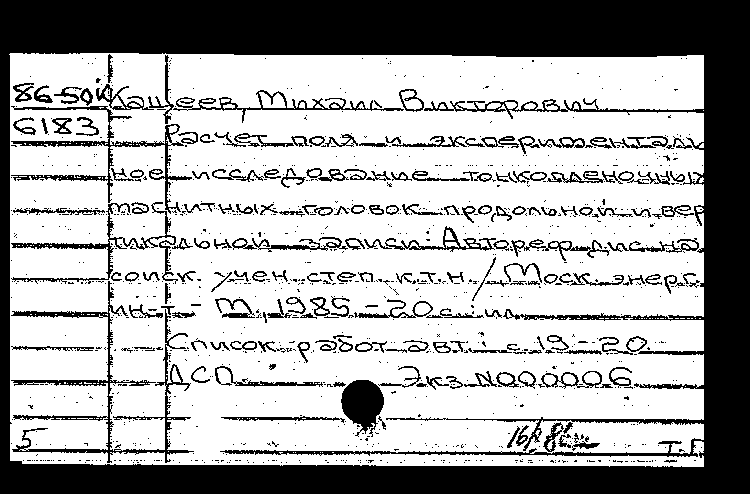 86-50к Кащеев, Михаил Викторович
6183 Расчет поля и эксперименталь
ное исследование тонкопленочных
магнитных головок продольной и вер
тикальной записи: Автореф. дис. на
соиск. учен. степ. к.т.н. / Моск. энерг.
ин-т. - М., 1985 - 20 с.: ил.
Список работ авт.: с. 19-20.
ДСП. Экз. N000006
5